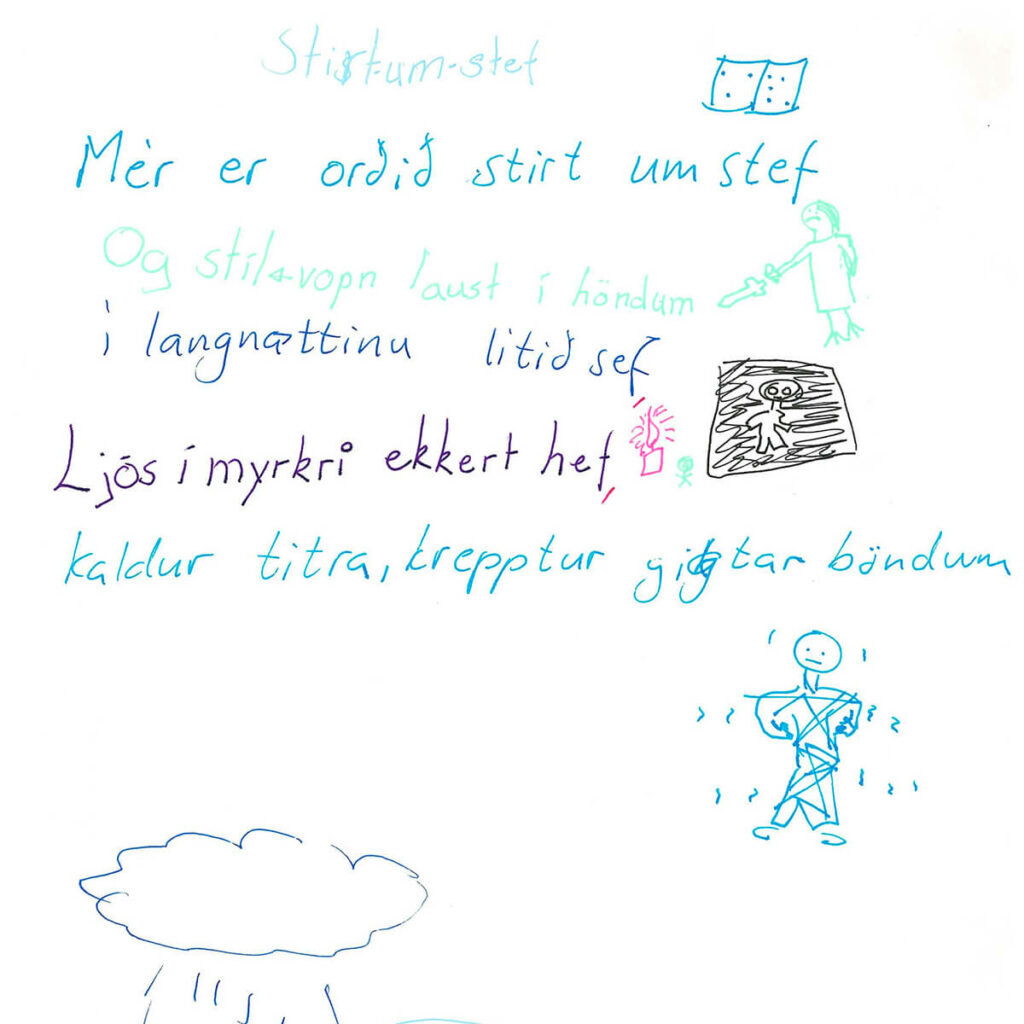 Stirt-um-stef
Mèr er orðið stirt um stef
Og stílsvopn laust í höndum
í langnættinu litið sef
Ljós í myrkri ekkert hef
kaldur titra, krepptur gigtar böndum